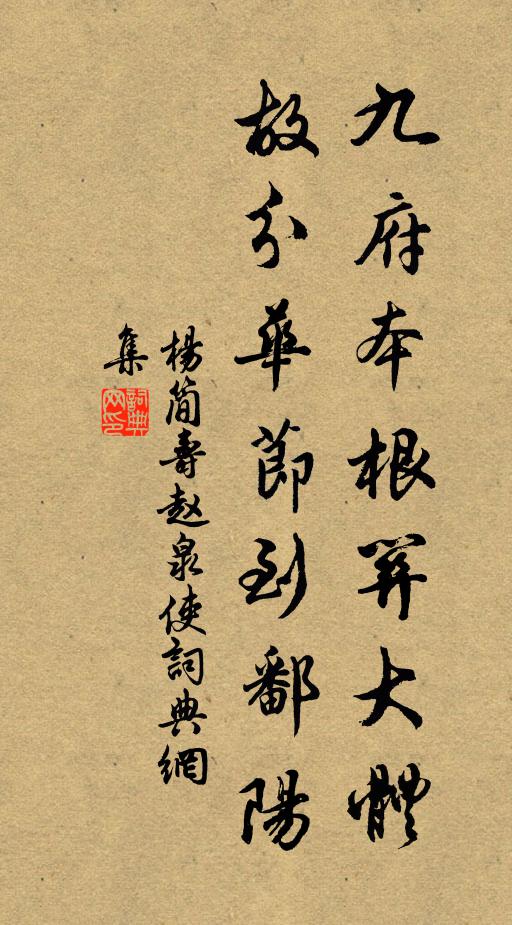 九府本根關大體
故分華節到鄱陽
楊簡壽趙泉使詞典網
集
詞典
网印